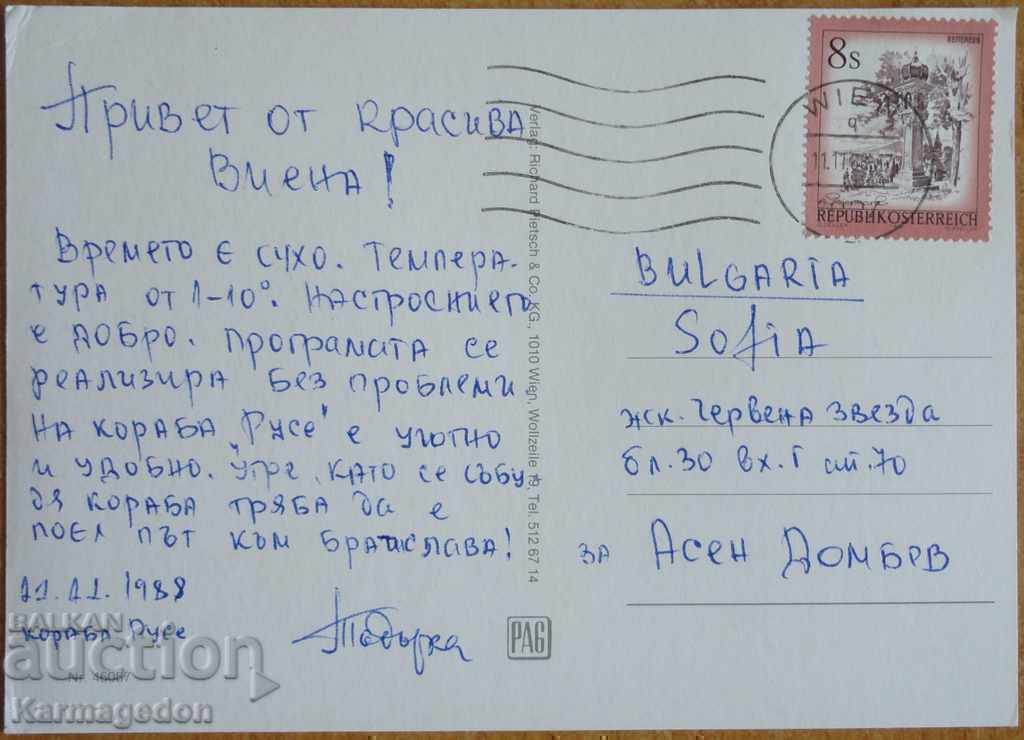 Привет от красива
Виена!
Времето е сухо. Темпера-
тура от 1-10°. Настроението
е добро. Програмата се
реализира без проблеми
На кораба „Русе" е уютно
и удобно. Утре, като се събу
дя кораба трябва да е
поел път към Братислава!
11.11.1988
кораба Русе
Тодорка
Nr. 46087
Verlag: Richard Pietsch & Co. KG., 1010 Wien, Wollzeile 19, Tel. 512 67 14
PAG
8s
REPUBLIK ÖSTERREICH
WIE
11.11
BULGARIA
Sofia
жк. Червена звезда
бл. 30 вх. Г ап. 70
за Асен Домбев
BALKAN
auction
Karmagedon